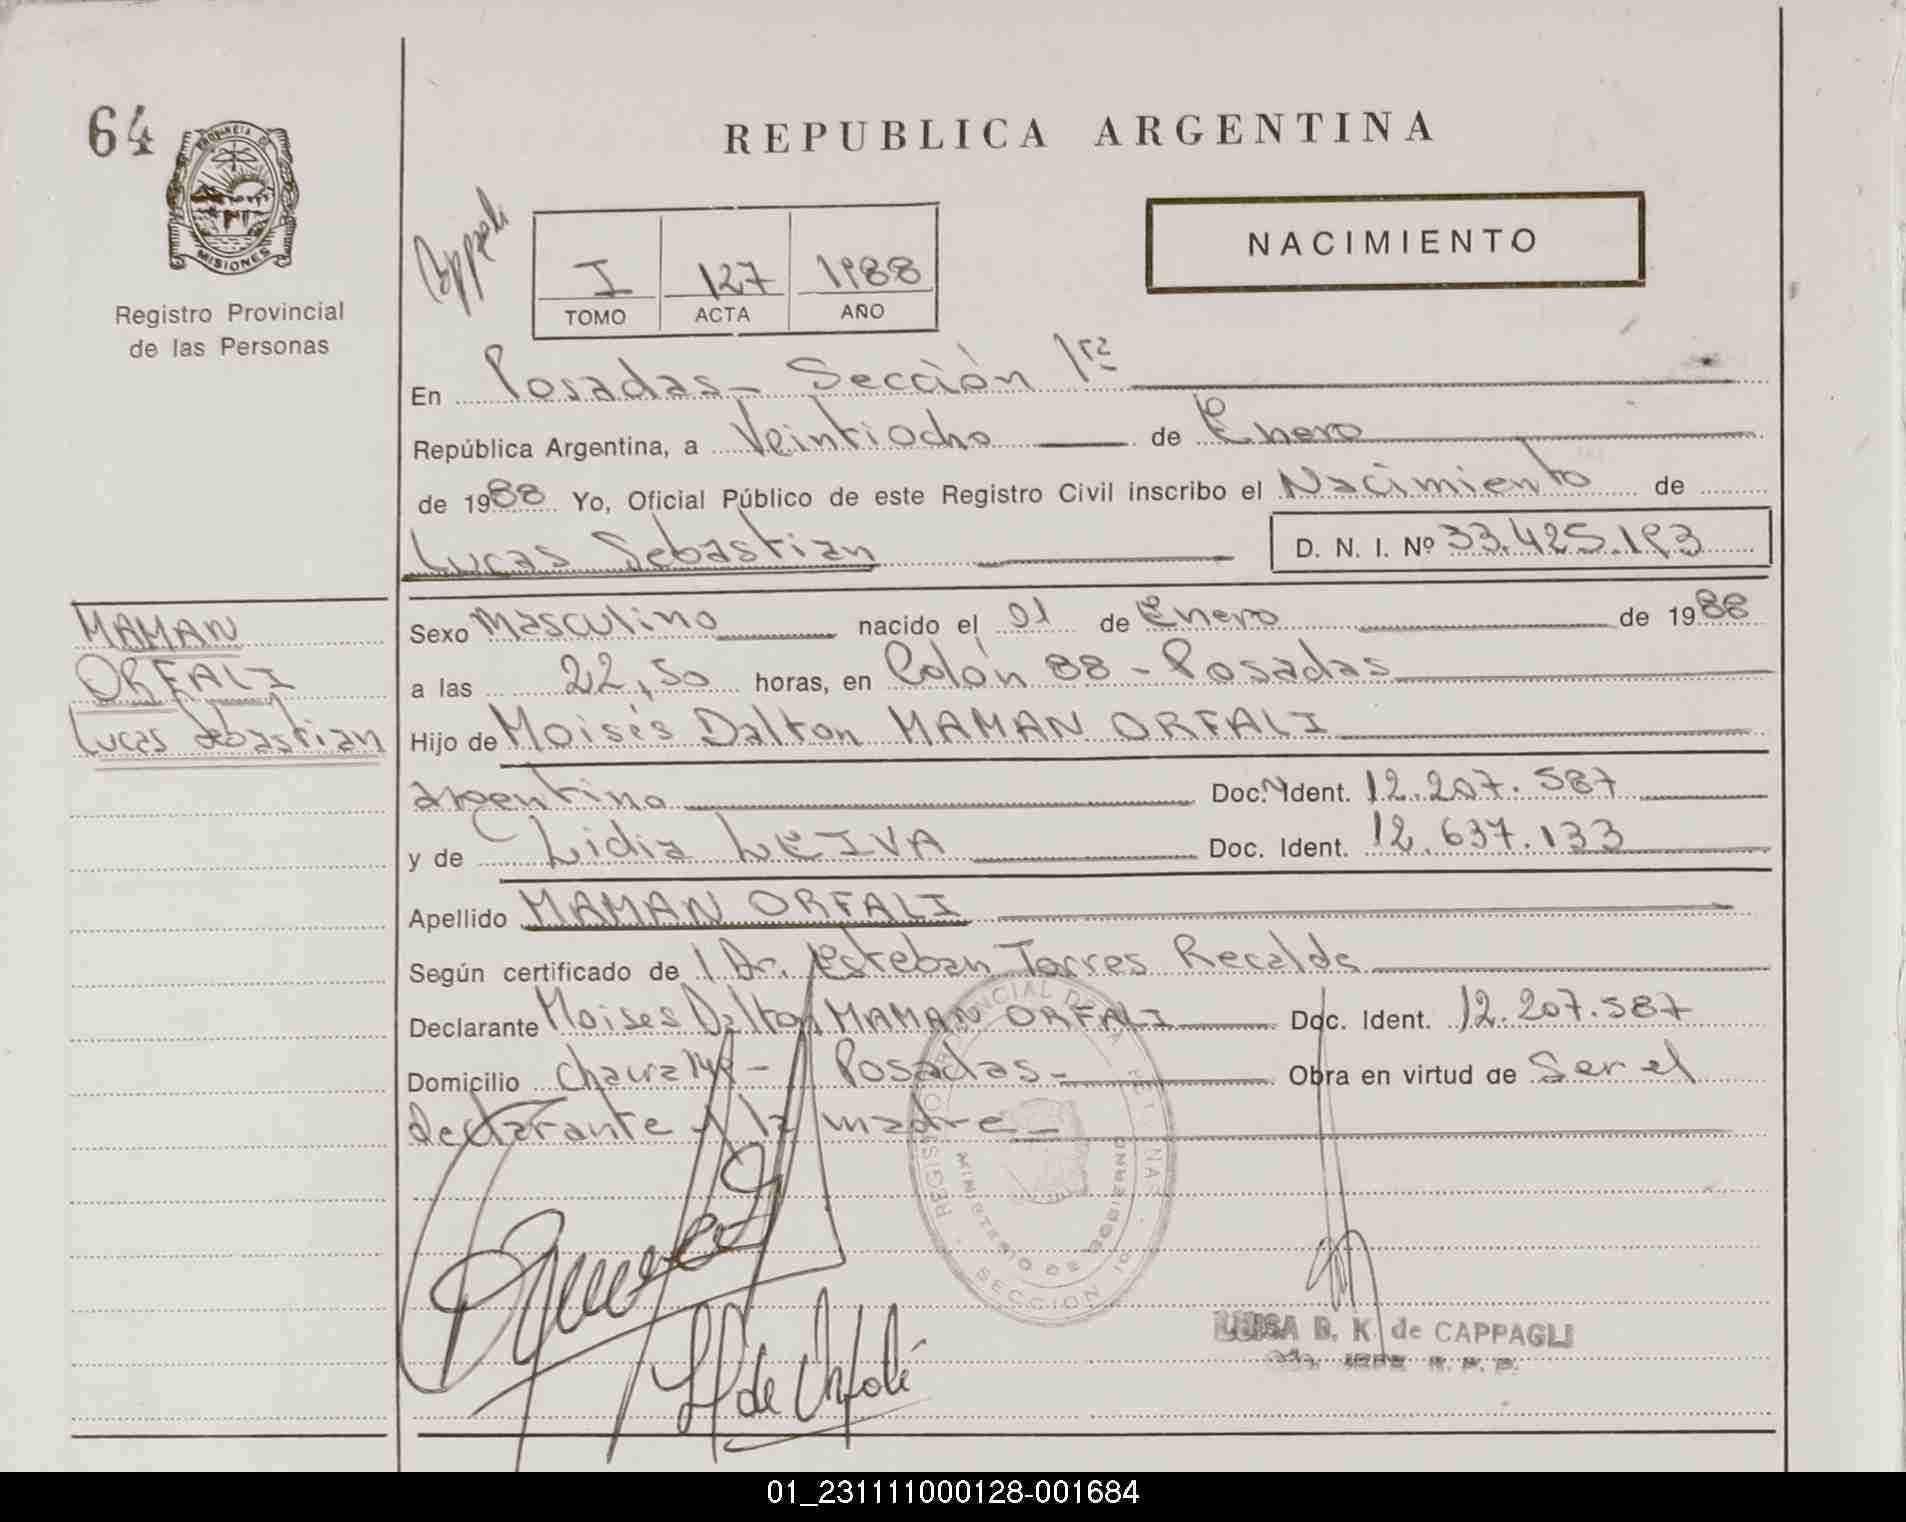 64
PROVINCIA
MISIONES
Registro Provincial
de las Personas
REPUBLICA ARGENTINA
NACIMIENTO
I 127 1988
TOMO ACTA AÑO
En Posadas - Sección 1ra
República Argentina, a Veintiocho de Enero
de 1988 Yo, Oficial Público de este Registro Civil inscribo el Nacimiento de
Lucas Sebastian D. N. I. Nº 33.425.193
MAMAN
ORFALI
Lucas Sebastian
Sexo Masculino nacido el 01 de Enero de 1988
a las 22,50 horas, en Colón 88 - Posadas
Hijo de Moisés Dalton MAMAN ORFALI
argentino Doc. Ident. 12.207.587
y de Lidia LEIVA Doc. Ident. 12.637.133
Apellido MAMAN ORFALI
Según certificado de Dr. Esteban Torres Recalde
Declarante Moises Dalton MAMAN ORFALI Doc. Ident. 12.207.587
Domicilio - Posadas - Obra en virtud de Ser el
declarante y la madre -
MINISTERIO DE GOBIERNO
SECCION 1a
de Orfali
LUISA B. K. de CAPPAGLI
JEFE R. P. P.
01_231111000128-001684